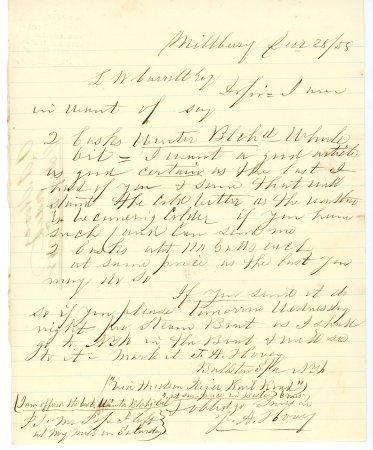 Millbury Dec 28/58
L W Carroll Esq
Dr Sir = I am
in want of say
2 Casks Winter Blch'd Whale
Oil = I want a good article
as good certain as the last I
had of you & some that will
stand the cold better as the weather
is becoming colder if you have
such and can send me
2 Casks abt 40 Galls each
at same price as the last you
may do so
If you send it do
so if you please tomorrow Wednesday
night per Steam Boat as I shall
go to N York in the Boat & will see
to it = Mark it J. A. Hovey
Ballston Spa N.Y.
("via Hudson River Rail Road")
I am offered the best at
same price in Boston
oblidge Truly &c
J. A. Hovey
P.S. Mr left
at my mill on Saturday